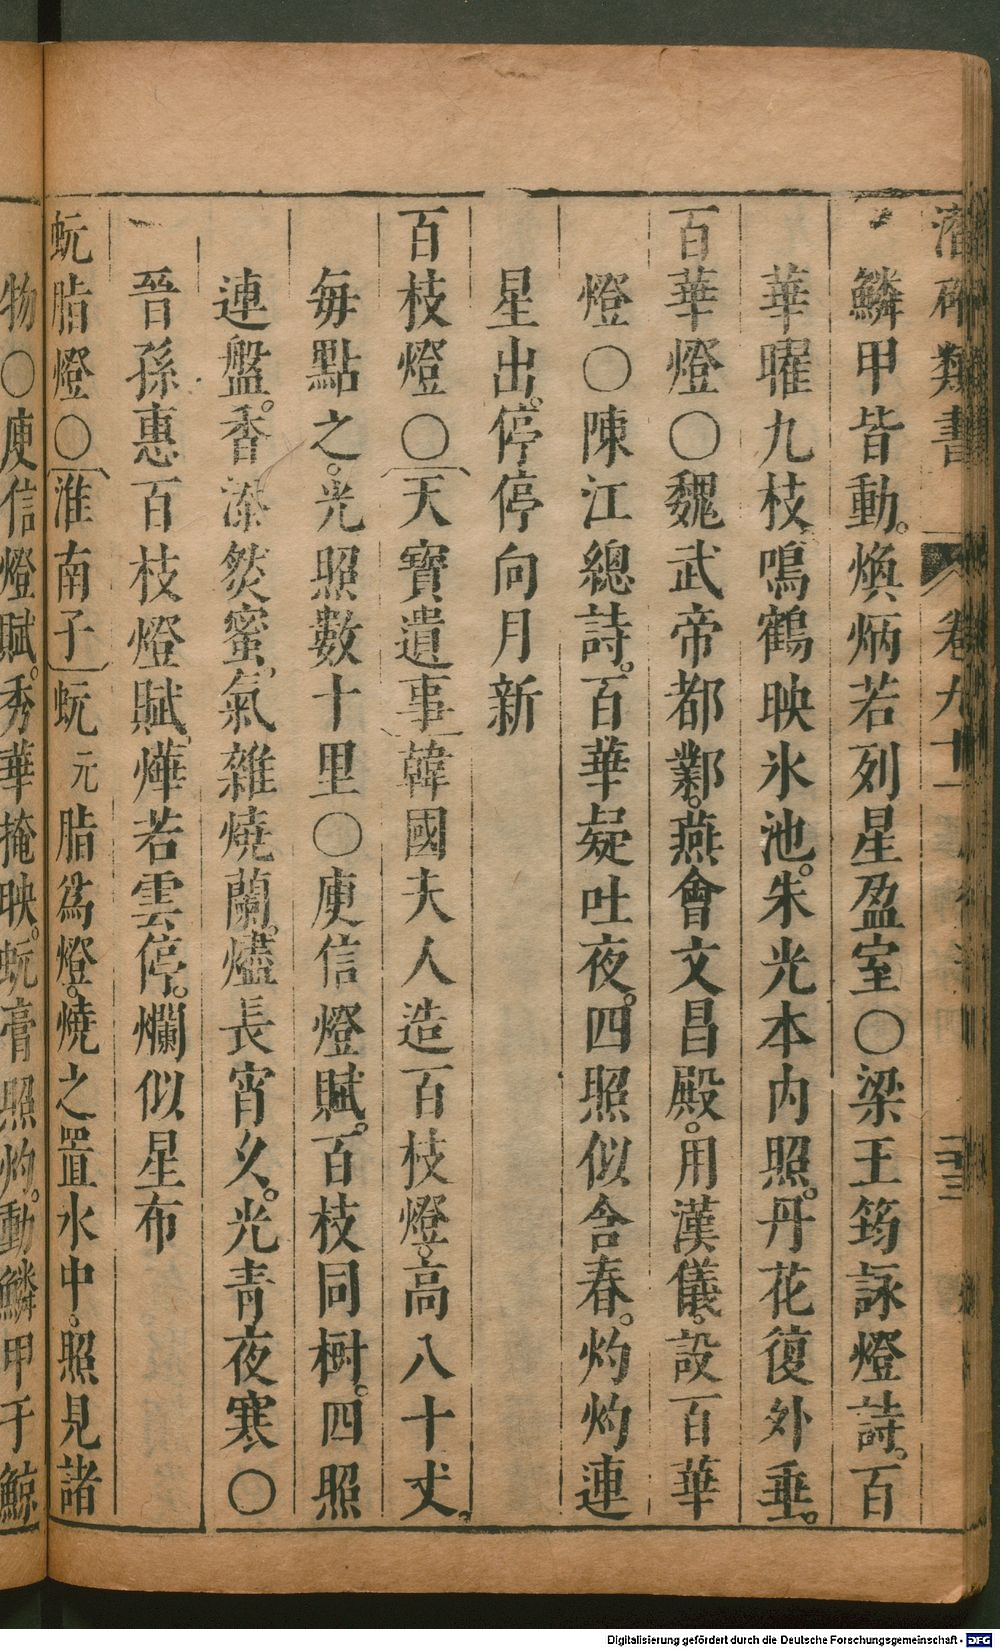 潛確類書 卷九十一 二十三
鱗甲皆動。煥炳若列星盈室〇梁王筠詠燈詩。百
華曜九枝。鳴鶴映氷池。朱光本內照。丹花復外垂。
百華燈〇魏武帝都鄴。燕會文昌殿。用漢儀。設百華
燈〇陳江總詩。百華疑吐夜。四照似含春。灼灼連
星出。停停向月新
百枝燈〇天寶遺事韓國夫人造百枝燈。高八十丈。
每點之。光照數十里〇庾信燈賦。百枝同樹。四照
連盤。香添然蜜。氣雜燒蘭。燼長宵久。光青夜寒〇
晉孫惠百枝燈賦。燁若雲停。爛似星布
蚖脂燈〇淮南子蚖元脂爲燈。燒之置水中。照見諸
物〇庾信燈賦。秀華掩映。蚖膏照灼。動鱗甲于鯨
Digitalisierung gefördert durch die Deutsche Forschungsgemeinschaft - DFG